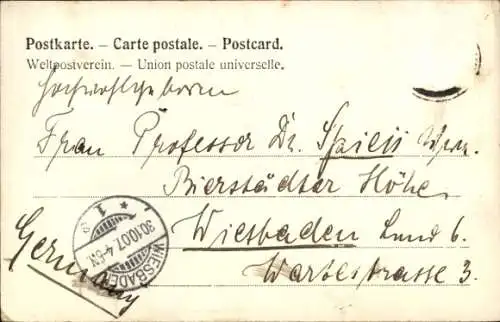 Postkarte. – Carte postale. – Postcard.
Weltpostverein. – Union postale universelle.
Hochwohlgeboren
Frau Professor Dr.
Bierstädter Höhe
Wiesbaden
Wartestrasse 3.
Germany
WIESBADEN
30.10.07. 4-5N.
* 1